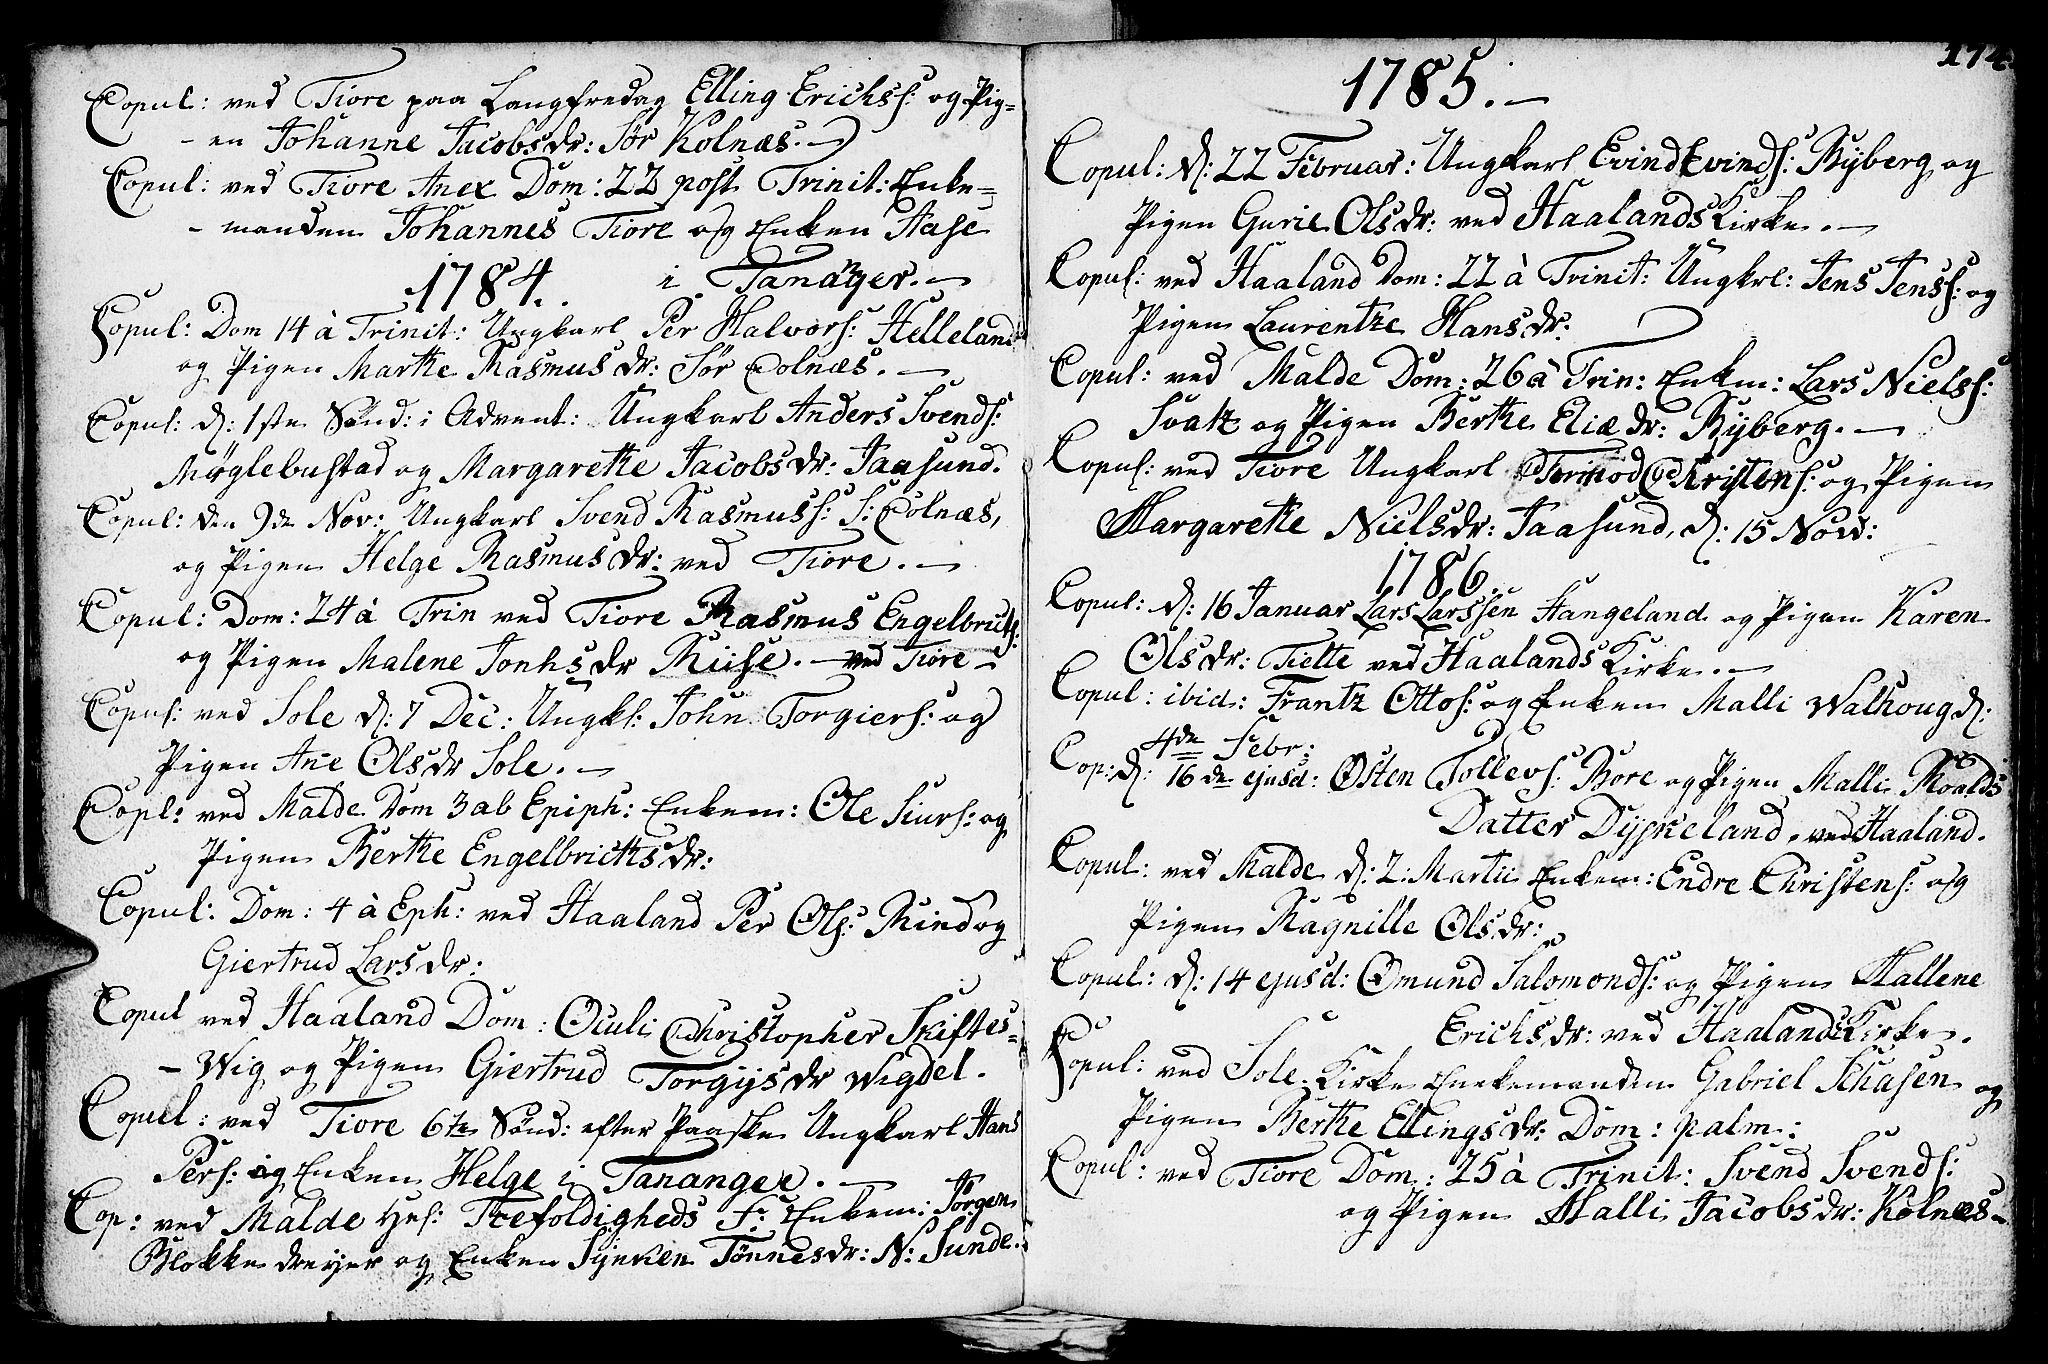 Copul: ved Tiore paa Langfredag Elling Erichss: og Pig=
-en Johanne Jacobsdr: Sør Kolnæs.—
Copul: ved Tiore Anex Dom: 22 post Trinit: Enke=
-manden Johannes Tiore og Enken Aase
i Tananger.—
1784.
Copul: Dom 14 à Trinit: Ungkarl Per Halvors: Helleland
og Pigen Marthe Rasmusdr: Sør Colnæs.—
Copul: d: 1ste Sønd: i Advent: Ungkarl Anders Svends:
Møglebustad og Margarethe Jacobsdr: Jaasund.
Copul: den 9de Nov: Ungkarl Svend Rasmuss: S: Colnæs,
og Pigen Helge Rasmusdr: ved Tiore.—
Copul: Dom: 24 à Trin ved Tiore Rasmus Engelbrichts:
og Pigen Malene Jonhsdr Riise.— ved Tiore—
Copul: ved Sole d: 7 Dec: Ungkl: John Torgiers: og
Pigen Ane Olsdr Sole.—
Copl: ved Malde Dom 3 ab Epiph: Enkem: Ole Siurs: og
Pigen Berthe Engelbrichtsdr:
Copul: Dom: 4 à Eph: ved Haaland Per Ols: Rind og
Giertrud Larsdr:
Copul ved Haaland Dom: Oculi Christopher Skiftes=
-Wig og Pigen Giertrud Torgysdr Wigdel.
Copul: ved Tiore 6te Sønd: efter Paaske Ungkarl Hans
Pers: og Enken Helge i Tananger.—
Cop: ved Malde Hel: Trefoldigheds F: Enkem: Jørgen
Blokkedreyer og Enken Synken Tønnesdr: N: Sunde.
174
1785.—
Copul: d: 22 Februar: Ungkarl Evind Evinds: Ryberg og
Pigen Gurie Olsdr: ved Haalands Kirke.—
Copul: ved Haaland Dom: 22 à Trinit: Ungkrl: Jens Jenss: og
Pigen Laurentze Hansdr:
Copul: ved Malde Dom: 26 à Trin: Enkm: Lars Niels:
Svatz og Pigen Berthe Eliædr: Ryberg.—
Copul: ved Tiore Ungkarl Tormod Christens: og Pigen
Margarethe Nielsdr: Jaasund, d: 15 Nov:
1786.
Copul: d: 16 Januar Lars Larssen Stangeland og Pigen Karen
Olsdr: Tielte ved Haalands Kirke.—
Copul: ibid: Frantz Ottos: og Enken Malli Walhoug d:
4de Febr:
Cop: d: 16de ejusd: Østen Tollevs: Bore og Pigen Malli Roalds
Datter Dyskeland, ved Haaland.
Copul: ved Malde d: 2: Martii Enkem: Endre Christens: og
Pigen Ragnille Olsdr:
Copul: d: 14 ejusd: Omund Salomonds: og Pigen Mallene
Erichsdr: ved Haalands Kirke.
Copul: ved Sole Kirke Enkemanden Gabriel Schasen og
Pigen Berthe Ellingsdr: Dom: palm:
Copul: ved Tiore Dom: 25 à Trinit: Svend Svends:
og Pigen Malli Jacobsdr: Kolnæs.—